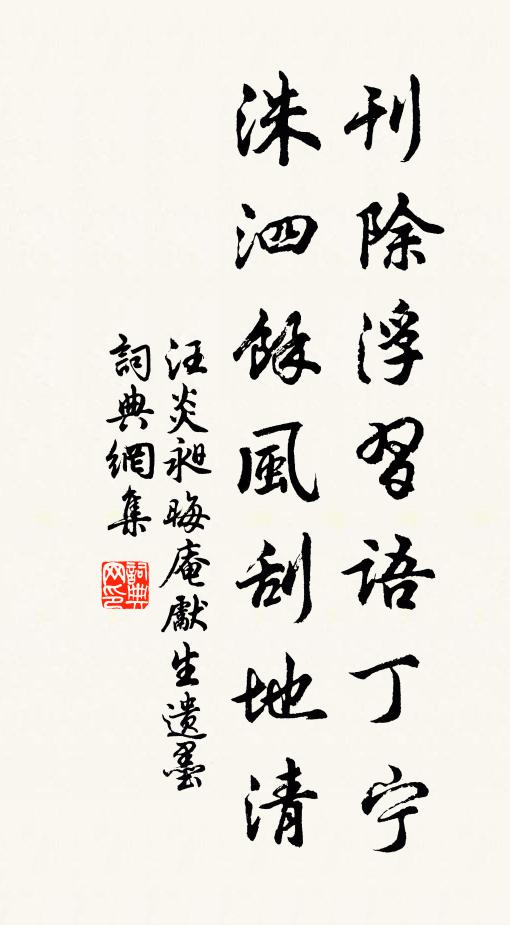 刊除浮習語丁宁
洙泗餘風刮地清
汪炎昶晦庵獻生遺墨
詞典網集
詞典网印